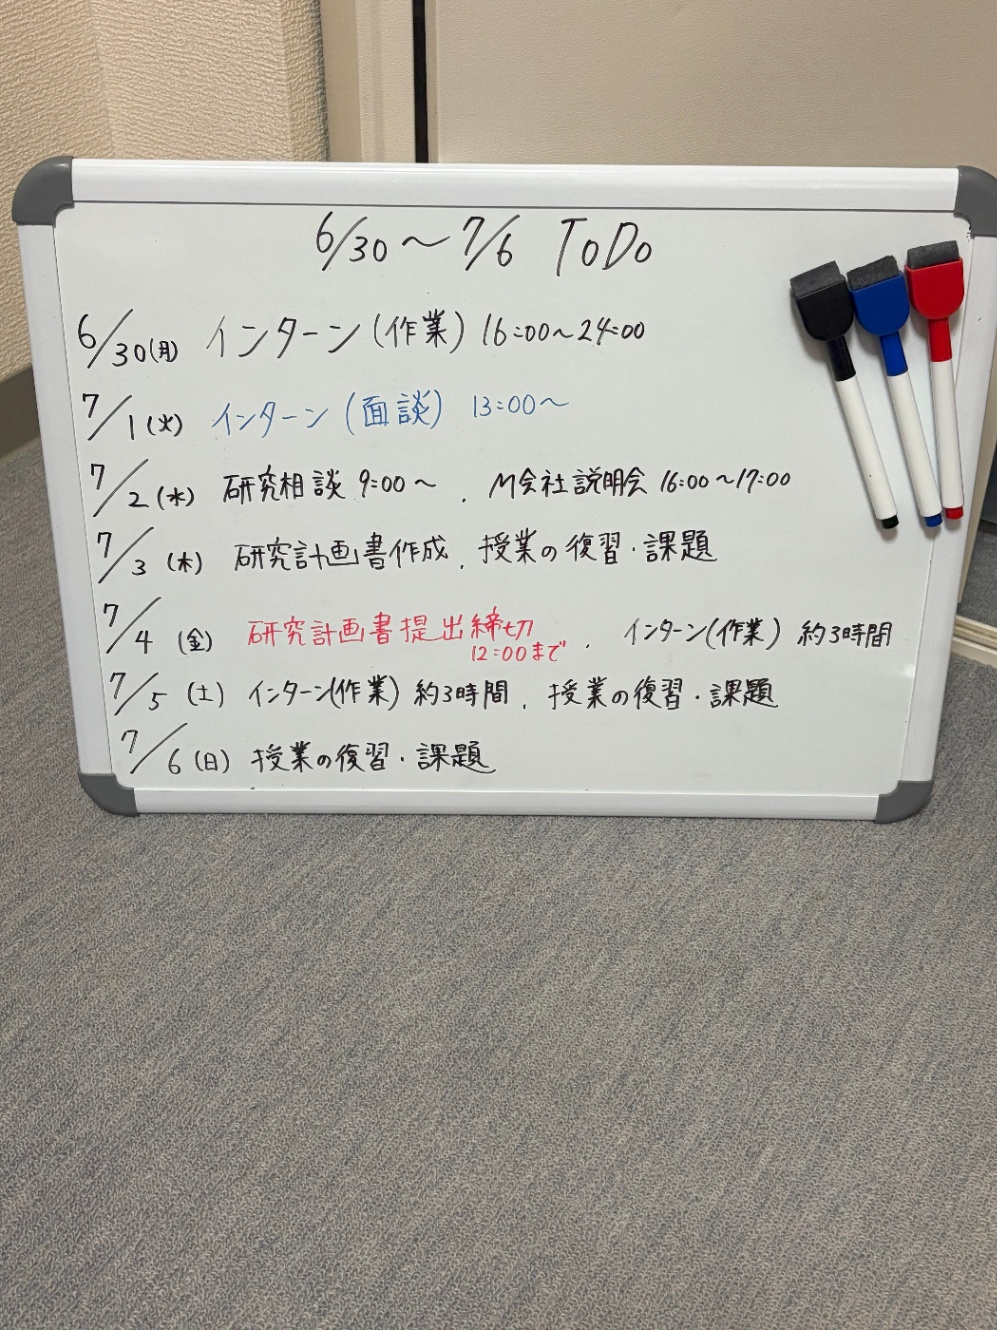 6/30～7/6 ToDo
6/30(月) インターン(作業) 16:00～24:00
7/1(火) インターン(面談) 13:00～
7/2(水) 研究相談 9:00～ , M会社説明会 16:00～17:00
7/3(木) 研究計画書作成, 授業の復習・課題
7/4(金) 研究計画書提出締切 12:00まで , インターン(作業) 約3時間
7/5(土) インターン(作業) 約3時間, 授業の復習・課題
7/6(日) 授業の復習・課題